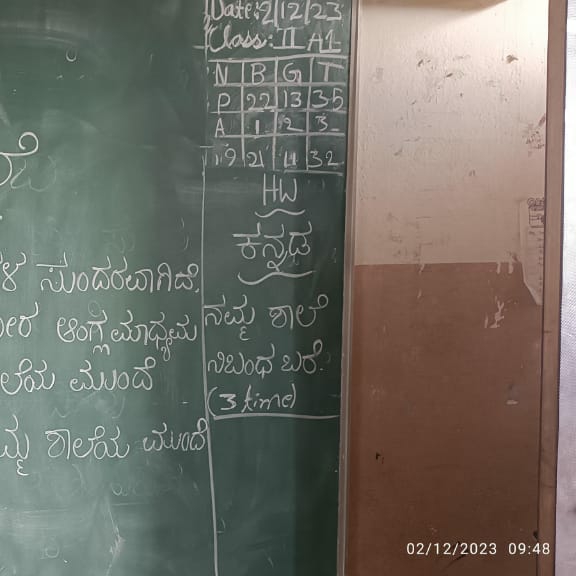 Date: 2/12/23
Class: II A1
N B G T
P 22 13 35
A 1 2 3
21 11 32
HW
ಕನ್ನಡ
ನಮ್ಮ ಶಾಲೆ
ನಿಬಂಧ ಬರೆ.
(3 time)
ಸುಂದರವಾಗಿದೆ.
ಆಂಗ್ಲಮಾಧ್ಯಮ
ಲೆಯ ಮುಂದೆ
ಮ್ಮ ಶಾಲೆಯ ಮುಂದೆ
02/12/2023 09:48